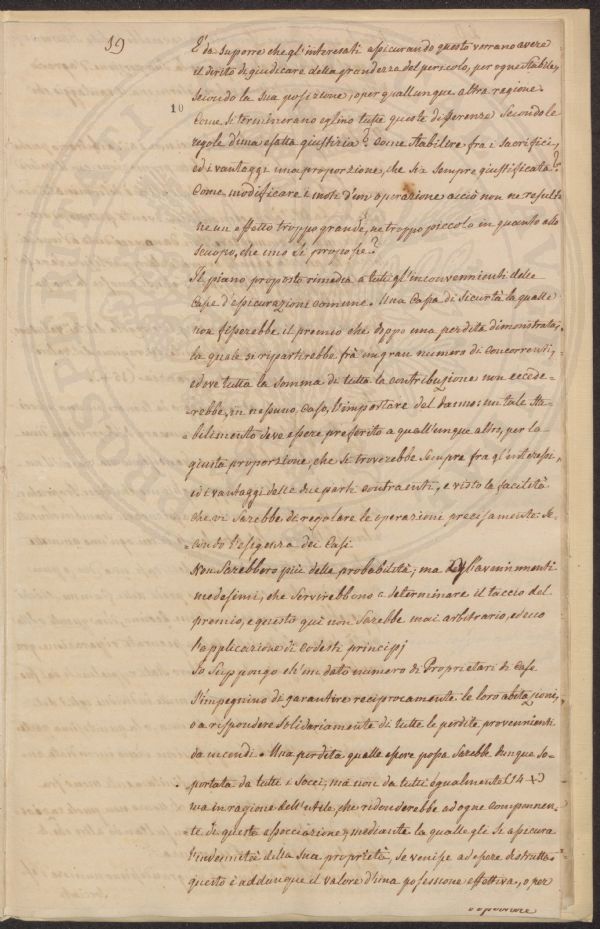 19
È da suporre che gl'interesati assicurando questo vorrano avere
il dirito di giudicare della grandezza del pericolo, per ogne stabile,
secondo la sua posizione, o per quallunque altra regione.
10
Come si terminerano eglino tutte queste diferenze secondo le
regole d'una esatta giustizia? Come stabilire fra i sacrifici,
ed i vantaggi una proporzione, che sia sempre giustificata?
Come modificare i mote d'un operazione acciò non ne resulti
ne un effetto troppo grande, ne troppo piccolo in quanto allo
scuopo, che uno si propose?
Il piano proposto rimedia a tuti gl'inconvennienti delle
Case d'assicurazioni comune. Una Cassa di sicurtà la qualle
non fisserebbe il premio che doppo una perdita dimonstrata,
la quale si rispartirebbe frà un gran numero di concorrenti,
ed ove tutta la somma di tutta la contribuzione non eccede-
rebbe, in nessuno caso, l'importare del danno: un tale sta-
bilimento deve essere preferito a quall'unque altro, per la
giusta proporzione, che si troverebbe sempre fra gl'interessi,
ed i vantaggi delle due parti contraenti, e visto le facilità
che vi sarebbe di regolare le operazioni precisamente se-
condo l'esigenza dei casi.
Non sarebbero più delle probabilità; ma gl'avennimenti
medesimi, che servirebbono a determinare il taccio del
premio, e questo qui non sarebbe mai arbitrario, ed ecco
l'applicazione di codesti principj
Io suppongo ch'un dato numero di Proprietari di Case
s'impegnino di garantire reciprocamente le loro abitazioni,
o a rispondere solidariamente di tutte le perdite, provennienti
da incendi. Una perdita qualle essere possa sarebbe dunque so-
portata da tutti i socci, ma non da tutti egualmente (14 +)
ma in ragione dell'utile, che ridonderebbe ad ogne componnen-
te di questa associazione, mediante la qualle gli si assicura
l'indennità della sua proprietà, se venisse ad essere distrutta:
questo è addunque il valore d'una possessione effettiva, o per